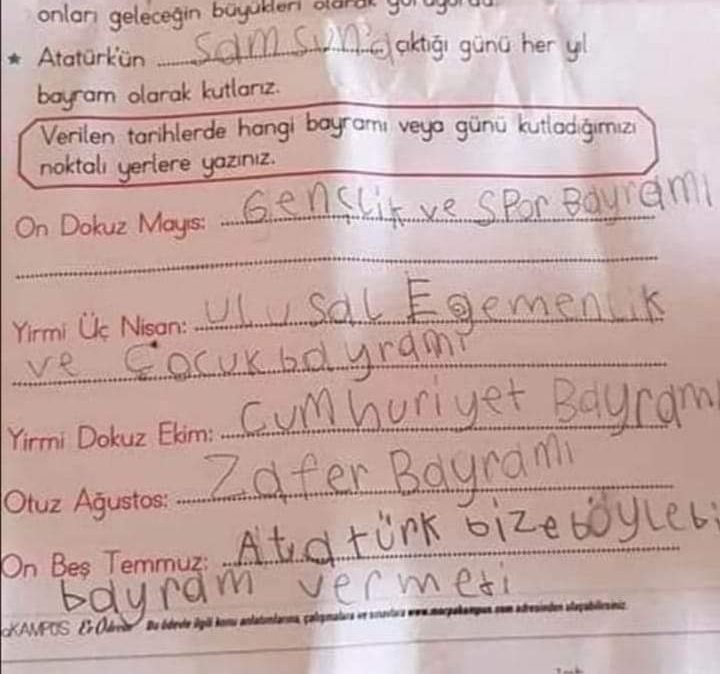 onları geleceğin büyükleri olarak görüyordu.
★ Atatürk'ün Samsun'a çıktığı günü her yıl
bayram olarak kutlarız.
Verilen tarihlerde hangi bayramı veya günü kutladığımızı
noktalı yerlere yazınız.
On Dokuz Mayıs: Gençlik ve Spor Bayramı
Yirmi Üç Nisan: Ulusal Egemenlik
ve Çocuk bayramı
Yirmi Dokuz Ekim: Cumhuriyet Bayramı
Otuz Ağustos: Zafer Bayramı
On Beş Temmuz: Atatürk bize böyle bi
bayram vermedi
KAMPÜS Ev Ödevi Bu ödevle ilgili konu anlatımlarına, çalışmalara ve sınavlara www.morpakampus.com adresinden ulaşabilirsiniz.